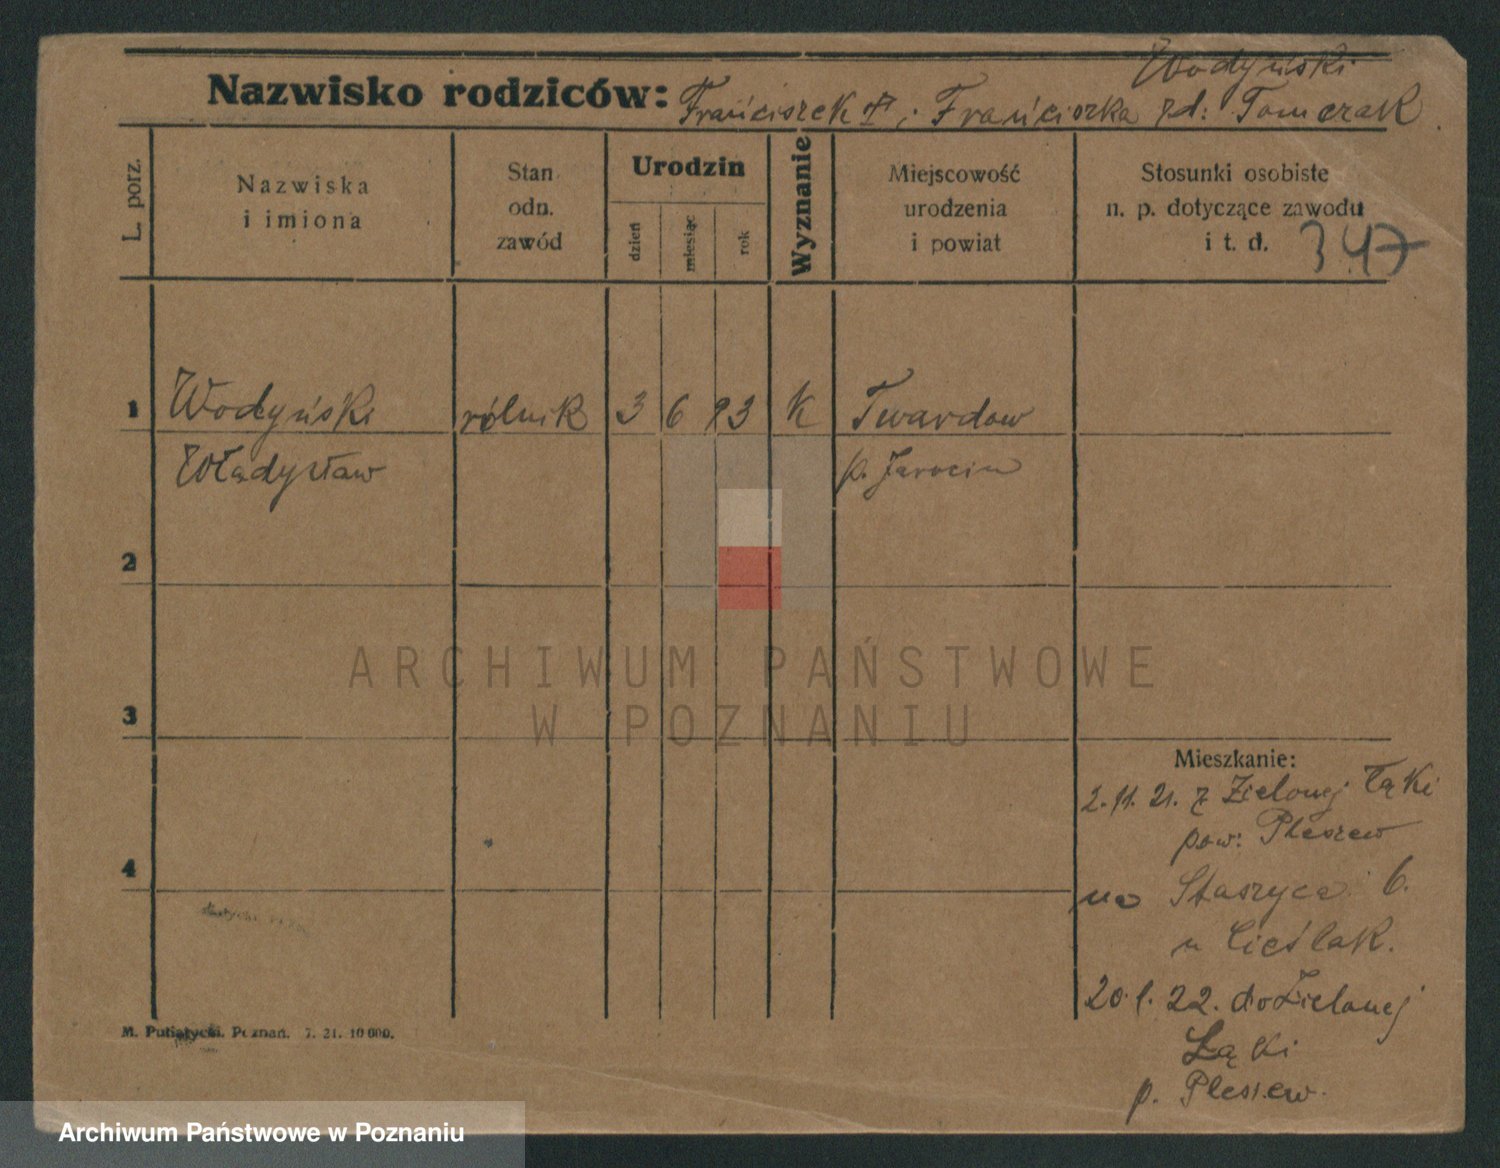 Wodyński
Nazwisko rodziców: Frańciszek † i Frańciszka rd: Tomczak
L. porz.
Nazwiska
i imiona
Stan
odn.
zawód
Urodzin
dzień
miesiąc
rok
Wyznanie
Miejscowość
urodzenia
i powiat
Stosunki osobiste
n. p. dotyczące zawodu
i t. d. 347
1 Wodyński rólnik 3 6 93 K Twardow
Władysław p. Jarocin
2
3
ARCHIWUM PAŃSTWOWE
W POZNANIU
Mieszkanie:
2.11.21. z Zielonej Łąki
pow: Pleszew
4
na Staszyca 6.
u Cieślak.
20.1.22. do Zielonej
Łąki
p. Pleszew.
M. Putiatycki. Poznań. 7. 21. 10 000.
Archiwum Państwowe w Poznaniu